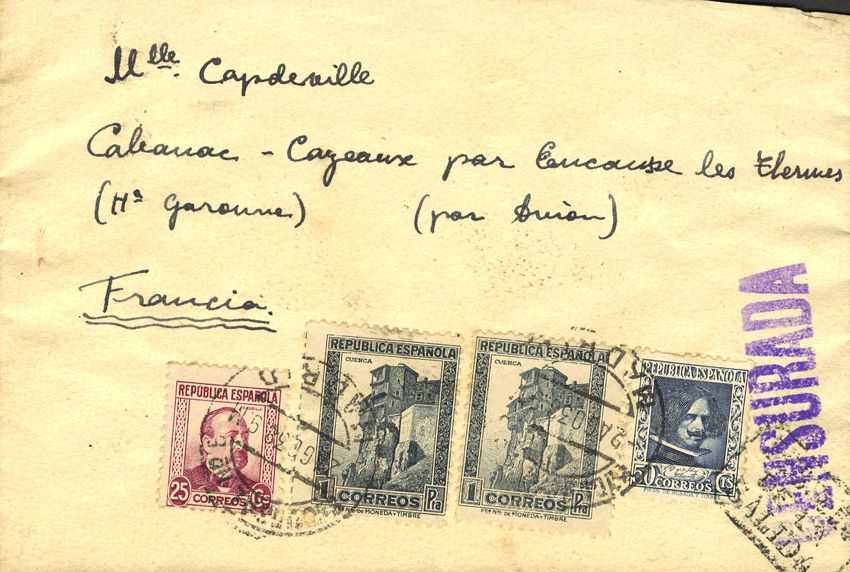 Mlle. Capdeville
Cabanac - Cazeaux par Encausse les Thermes
(Hte Garonne) (par Avion)
Francia.
REPÚBLICA ESPAÑOLA
25 CORREOS Cts
REPUBLICA ESPAÑOLA
CUENCA
1 CORREOS Pta
FCA. NAL. DE MONEDA Y TIMBRE
REPUBLICA ESPAÑOLA
CUENCA
1 CORREOS Pta
FCA. NAL. DE MONEDA Y TIMBRE
REPUBLICA ESPAÑOLA
50 CORREOS CTS
CENSURADA